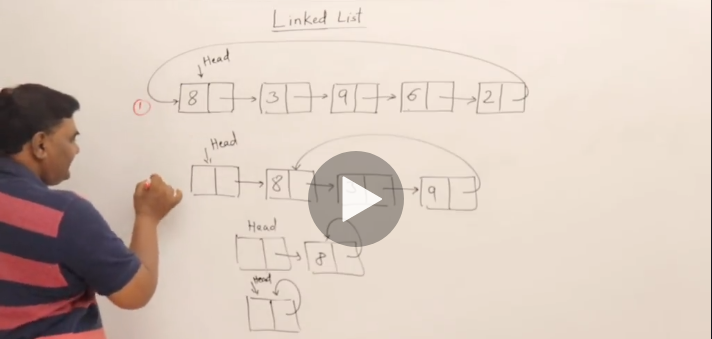 Linked List
Head
① 8 3 9 6 2
Head
8 9
Head
8
Head